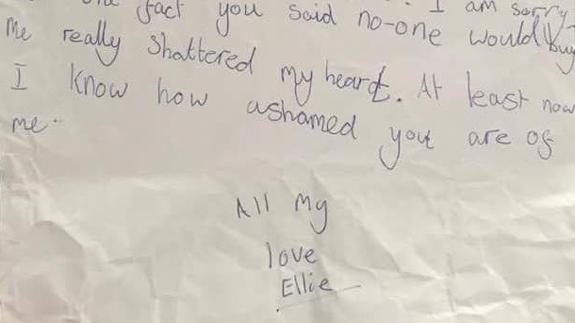 fact you said no-one would buy
I am sorry
me really shattered my heart. At least now
I know how ashamed you are of
me.
All my
love
Ellie